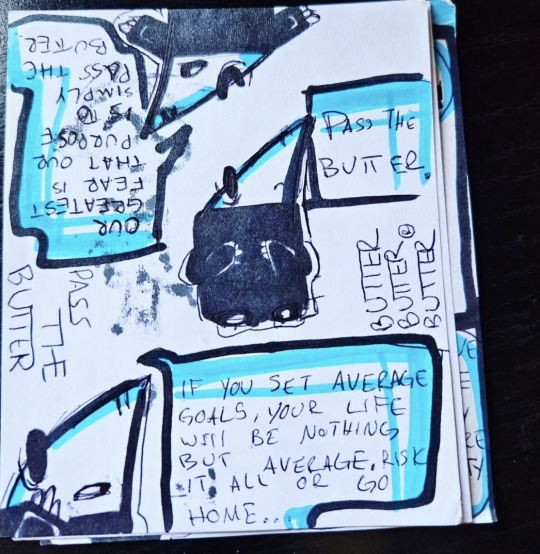 OUR
GREATEST
FEAR IS
THAT OUR
PURPOSE
IS TO
SIMPLY
PASS THE
BUTTER
PASS THE
BUTTER.
BUTTER
BUTTER
BUTTER
PASS
THE
BUTTER
IF YOU SET AVERAGE
GOALS, YOUR LIFE
WILL BE NOTHING
BUT AVERAGE. RISK
IT ALL OR GO
HOME..